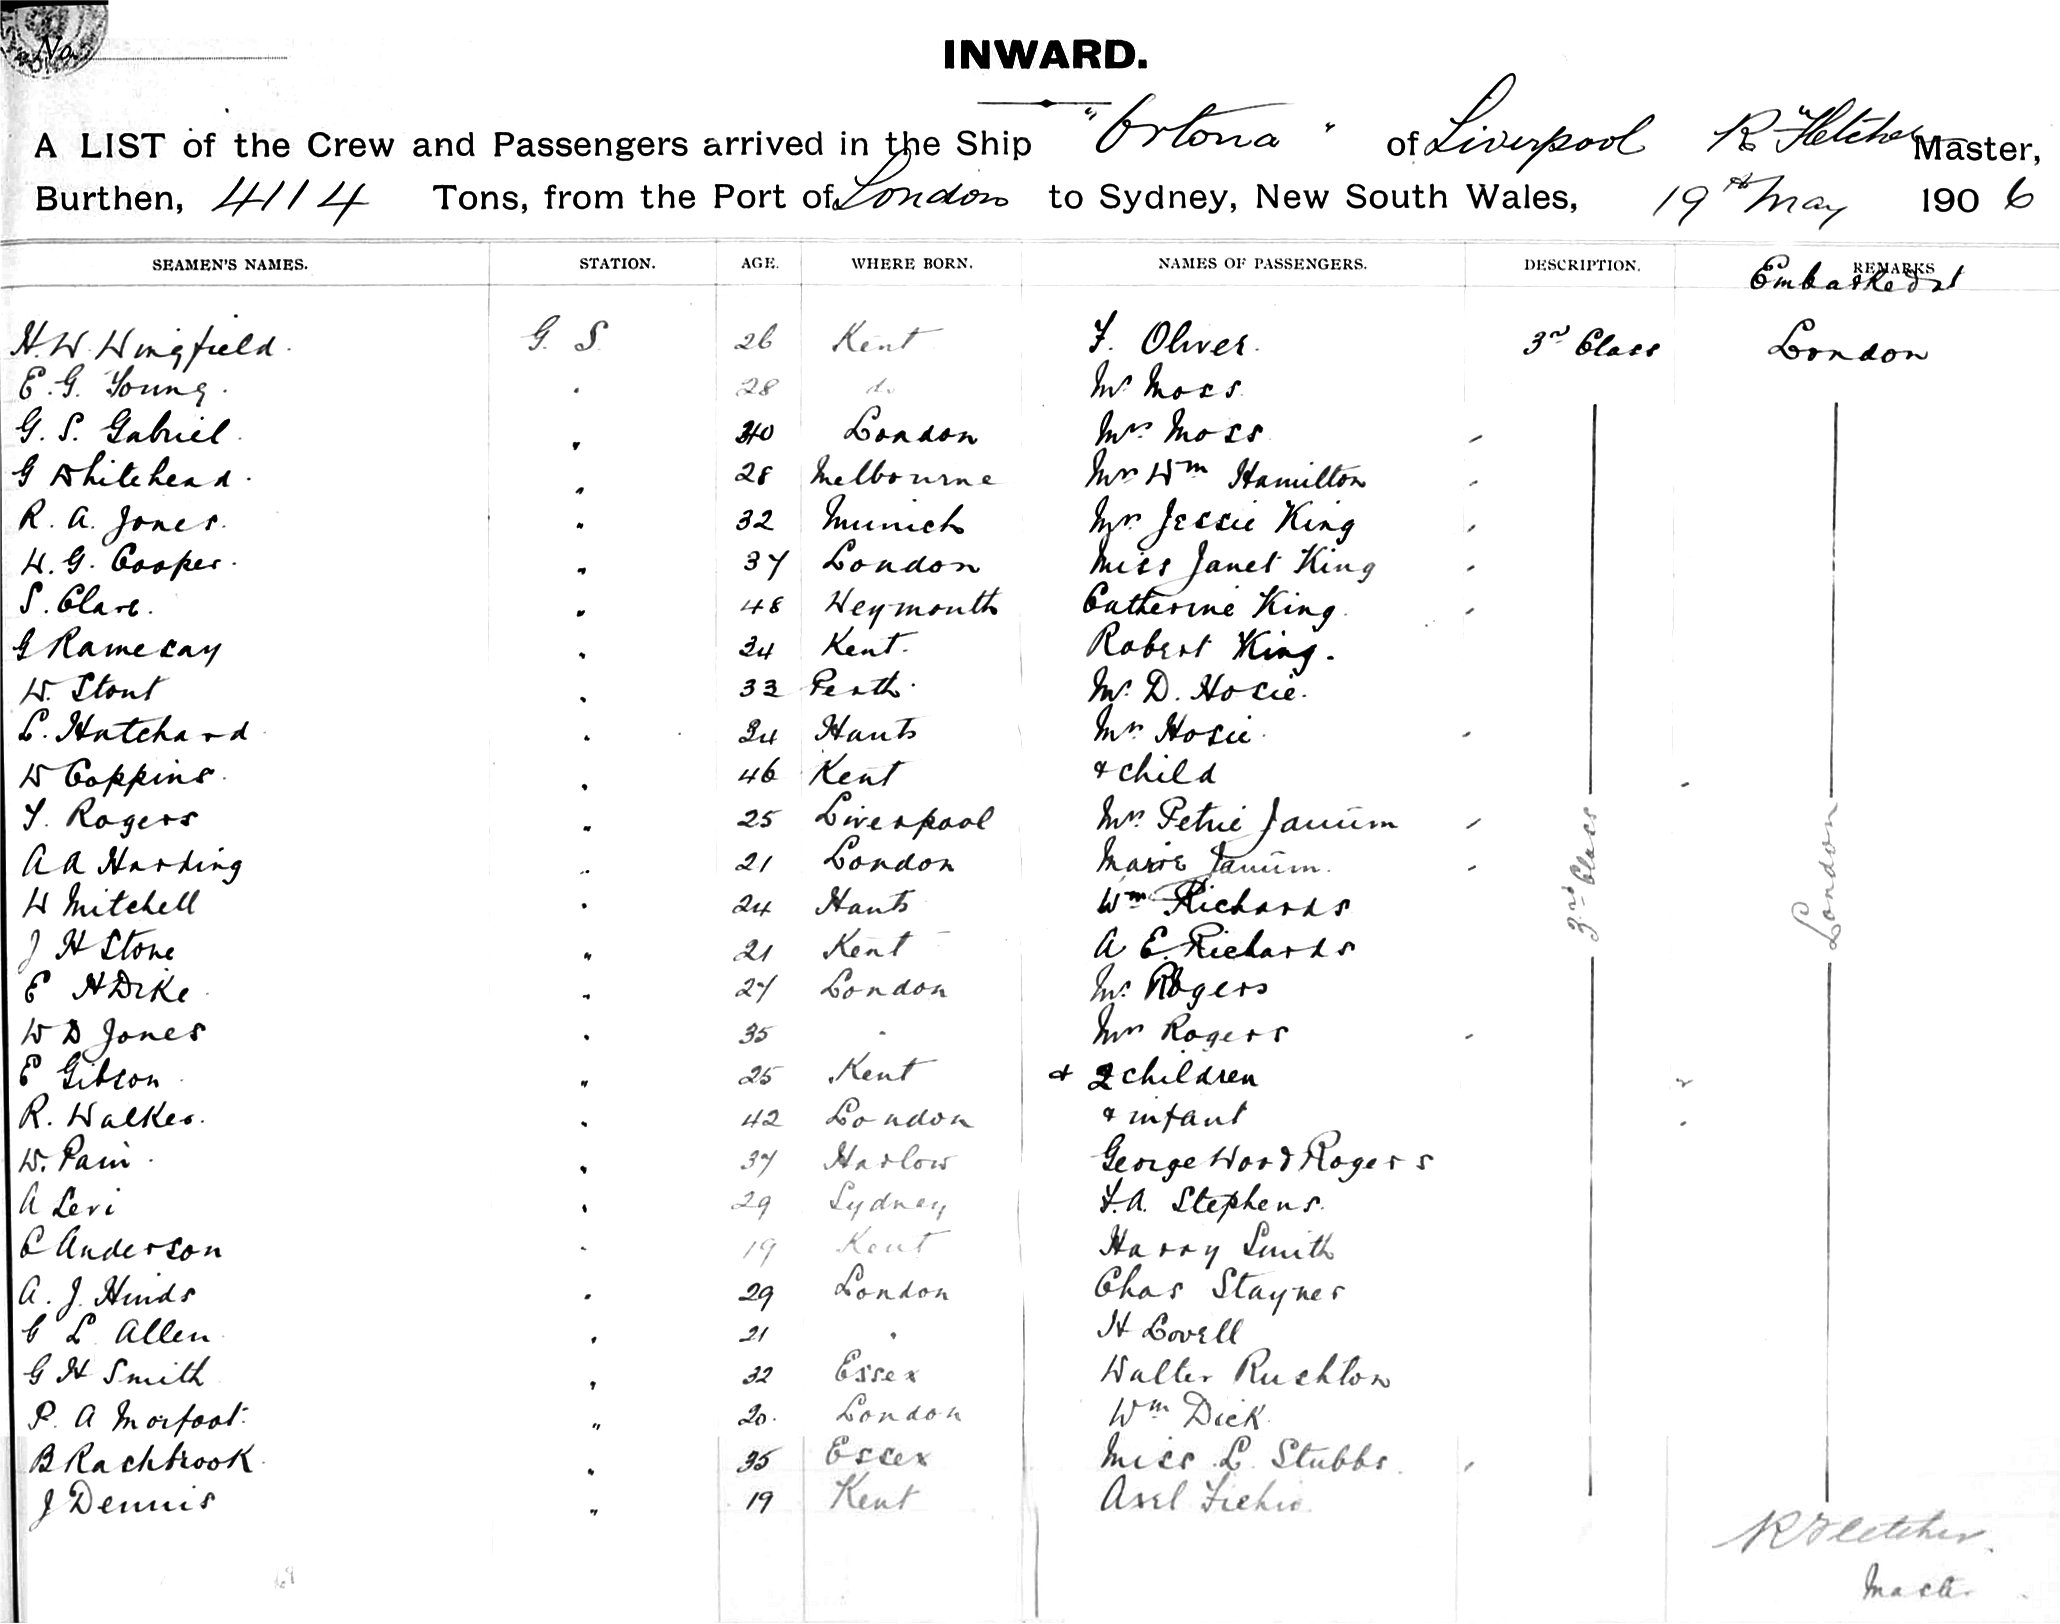 No.
INWARD.
A LIST of the Crew and Passengers arrived in the Ship "Ortona" of Liverpool R Fletcher Master,
Burthen, 4114 Tons, from the Port of London to Sydney, New South Wales, 19th May 1906
SEAMEN'S NAMES. STATION. AGE. WHERE BORN. NAMES OF PASSENGERS. DESCRIPTION. REMARKS
Embarked at
H. W. Wingfield. G. S. 26 Kent F. Oliver. 3rd Class London
E. G. Young. " 28 do Mr Moss
G. S. Gabriel. " 40 London Mrs Moss "
G Whitehead. " 28 Melbourne Mrs Wm Hamilton "
R. A. Jones. " 32 Munich Mrs Jessie King "
W. G. Cooper. " 37 London Miss Janet King "
S. Clare. " 48 Weymouth Catherine King. "
G Ramesay " 34 Kent. Robert King.
W. Stout " 33 Perth. Mr. D. Hosie.
L. Hutchard " 34 Hants Mrs Hosie. "
W Coppins. " 46 Kent & child
T. Rogers " 25 Liverpool Mrs Petrie "
A A Harding " 21 London Marie "
W Mitchell " 24 Hants Wm Richards 3rd Class London
J H Stone " 21 Kent A E. Richards
E H Dike " 27 London Mr. Rogers
W D Jones " 35 " Mrs Rogers "
E Gibson " 25 Kent & 2 children
R. Walker. " 42 London & infant
W. Pain. " 37 Harlow George Word Rogers
A Levi " 29 Sydney F. A. Stephens.
C Anderson " 19 Kent Harry Smith
A. J. Hinds " 29 London Chas Stayner
G L Allen " 21 " H Lovell
G H Smith " 32 Essex Walter Rushton
P. A Morfoot. " 20. London Wm Dick
B Rashbrook " 35 Essex Miss L. Stubbs. "
J Dennis " 19 Kent Axel
R Fletcher.
Master